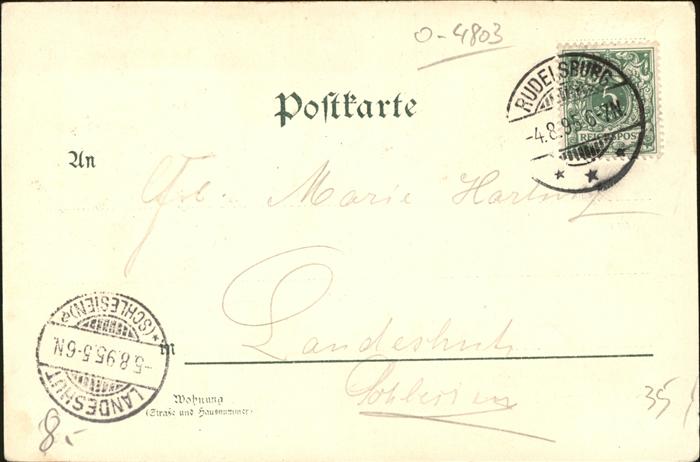 O-4803
Postkarte
RUDELSBURG
-4.8.95.6-7N.
5
REICHSPOST
An
Frl. Marie Hartwig
*(SCHLESIEN)a
-5.8.95.5-6N.
LANDESHUT
in Landeshut
Schlesien
Wohnung
(Straße und Hausnummer)
35
8.-